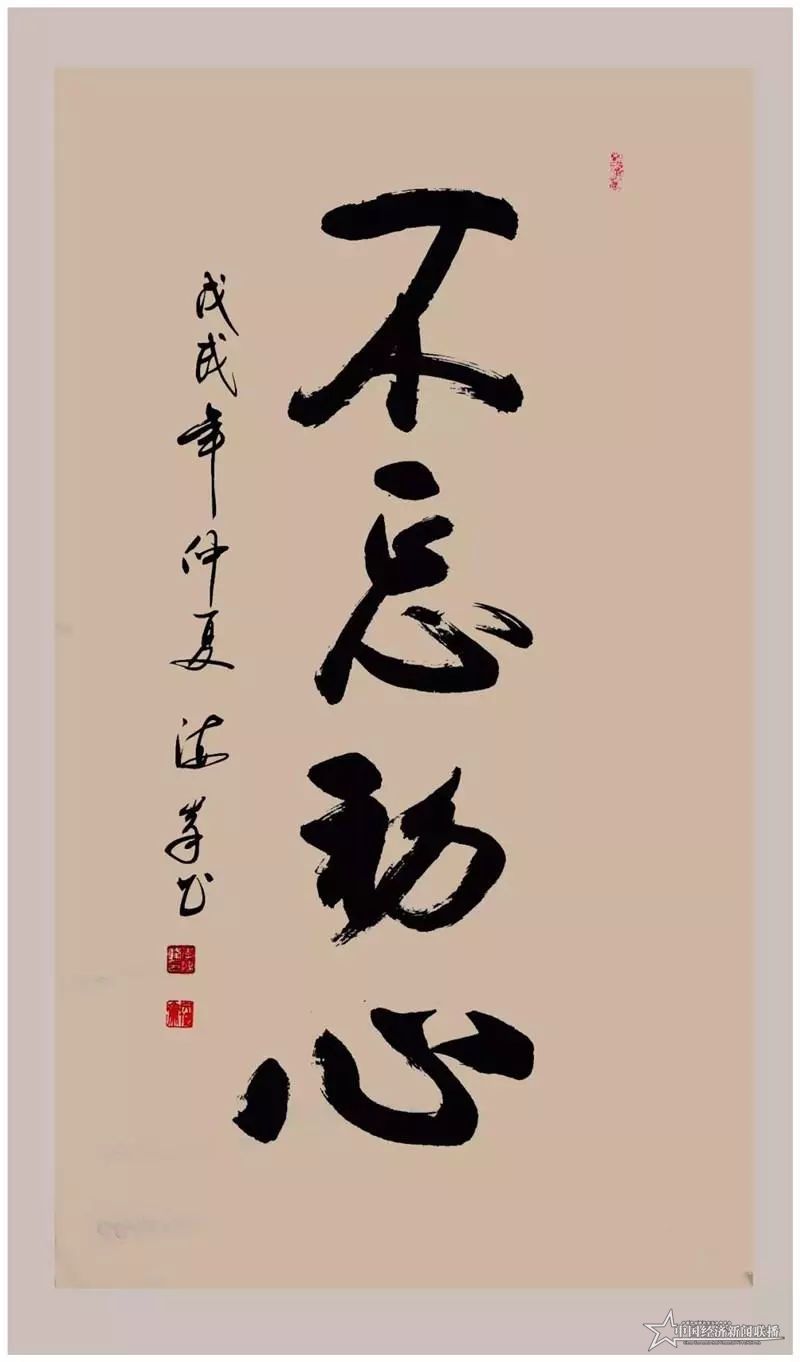 不忘初心
戊戌年仲夏 海峯书
中国经济新闻联播